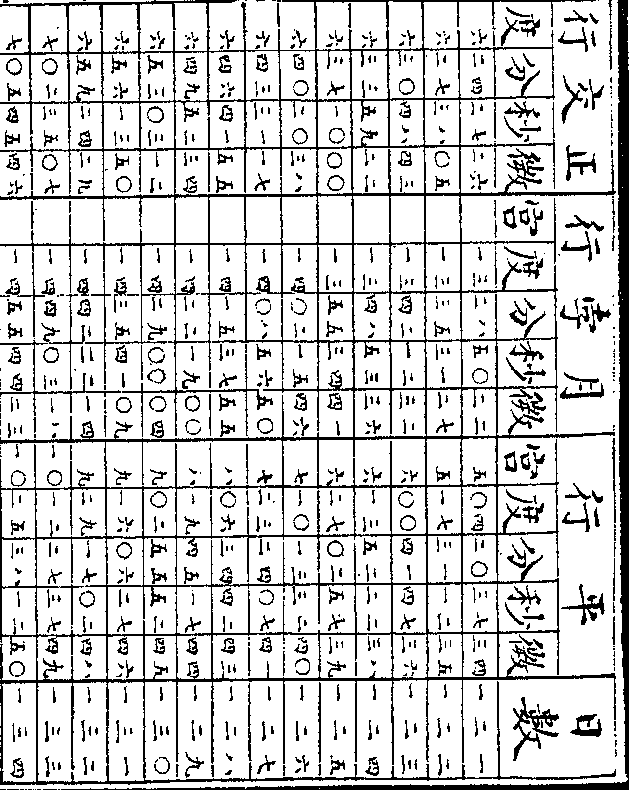 行交正 行孛月 行平 日數
度分秒微 宮度分秒微 宮度分秒微
六 二四 二七 二六 一三 二八 五〇 二二 五 〇四 二〇 三七 三四 一二一
六 二七 三八 〇五 一三 三五 三一 二七 五 一七 三一 一二 三五 一二二
六 三〇 四八 四三 一三 四二 一二 三二 六 〇〇 四一 四七 三六 一二三
六 三三 五九 二二 一三 四八 五三 三六 六 一三 五二 二二 三八 一二四
六 三七 一〇 〇〇 一三 五五 三四 四一 六 二七 〇二 五七 三九 一二五
六 四〇 二〇 三八 一四 〇二 一五 四六 七 一〇 一三 三二 四〇 一二六
六 四三 三一 一七 一四 〇八 五六 五〇 七 二三 二四 〇七 四一 一二七
六 四六 四一 五五 一四 一五 三七 五五 八 〇六 三四 四二 四三 一二八
六 四九 五二 三四 一四 二二 一九 〇〇 八 一九 四五 一七 四四 一二九
六 五三 〇三 一二 一四 二九 〇〇 〇四 九 〇二 五五 五二 四五 一三〇
六 五六 一三 五〇 一四 三五 四一 〇九 九 一六 〇六 二七 四六 一三一
六 五九 二四 二九 一四 四二 二二 一四 九 二九 一七 〇二 四八 一三二
七 〇二 三五 〇七 一四 四九 〇三 一八 一〇 一二 二七 三七 四九 一三三
七 〇五 四五 四六 一四 五五 四四 二三 一〇 二五 三八 一二 五〇 一三四